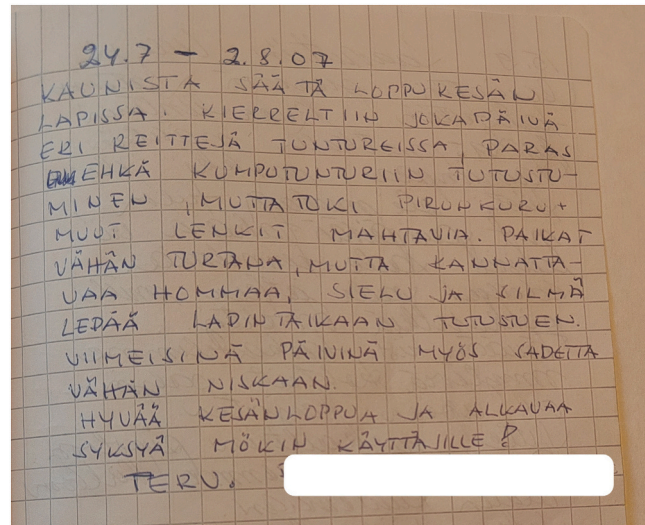 24.7 – 2.8.07
KAUNISTA SÄÄTÄ LOPPUKESÄN
LAPISSA. KIERRELTIIN JOKAPÄIVÄ
ERI REITTEJÄ TUNTUREISSA, PARAS
EHKÄ KUMPUTUNTURIIN TUTUSTU-
MINEN, MUTTA TOKI PIRUNKURU +
MUUT LENKIT MAHTAVIA. PAIKAT
VÄHÄN TURTANA, MUTTA KANNATTA-
VAA HOMMAA, SIELU JA SILMÄ
LEPÄÄ LAPIN TAIKAAN TUTUSTUEN.
VIIMEISINÄ PÄIVINÄ MYÖS SADETTA
VÄHÄN NISKAAN.
HYVÄÄ KESÄNLOPPUA JA ALKAVAA
SYKSYÄ MÖKIN KÄYTTÄJILLE!
TERV.